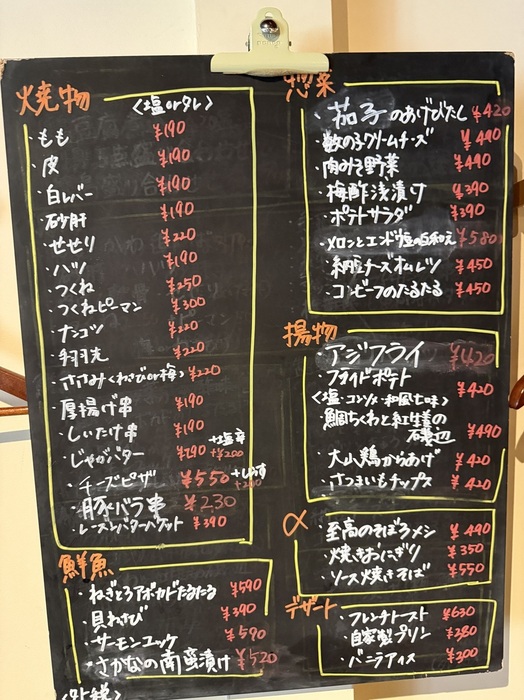 焼き物 〈塩orタレ〉
・もも ¥190
・皮 ¥190
・白レバー ¥190
・砂肝 ¥190
・せせり ¥220
・ハツ ¥190
・つくね ¥250
・つくねピーマン ¥300
・ナンコツ ¥220
・手羽先 ¥220
・ささみ〈わさびor梅〉 ¥220
・厚揚げ串 ¥190
・しいたけ串 ¥190
・じゃがバター ¥190 +塩辛 +¥200
・チーズピザ ¥550 +しらす +200
・豚バラ串 ¥230
・レーズンバターバケット ¥390
鮮魚
・ねぎとろアボカドたるたる ¥590
・貝わさび ¥390
・サーモンユッケ ¥590
・さかなの南蛮漬け ¥520
〈外税〉
惣菜
・茄子のあげびたし ¥420
・数の子クリームチーズ ¥490
・肉みそ野菜 ¥490
・梅酢浅漬け ¥390
・ポテトサラダ ¥390
・メロンとエンドウ塩の白和え ¥580
・納豆チーズオムレツ ¥450
・コンビーフのたるたる ¥450
揚物
・アジフライ ¥420
・フライドポテト ¥420
〈塩・コンソメ・和風七味〉
・鯛ちくわと紅生姜の
磯辺 ¥490
・大山鶏からあげ ¥420
・さつまいもチップス ¥420
〆
・至高のそぼろメシ ¥490
・焼きおにぎり ¥350
・ソース焼きそば ¥550
デザート
・フレンチトースト ¥630
・自家製プリン ¥280
・バニラアイス ¥300